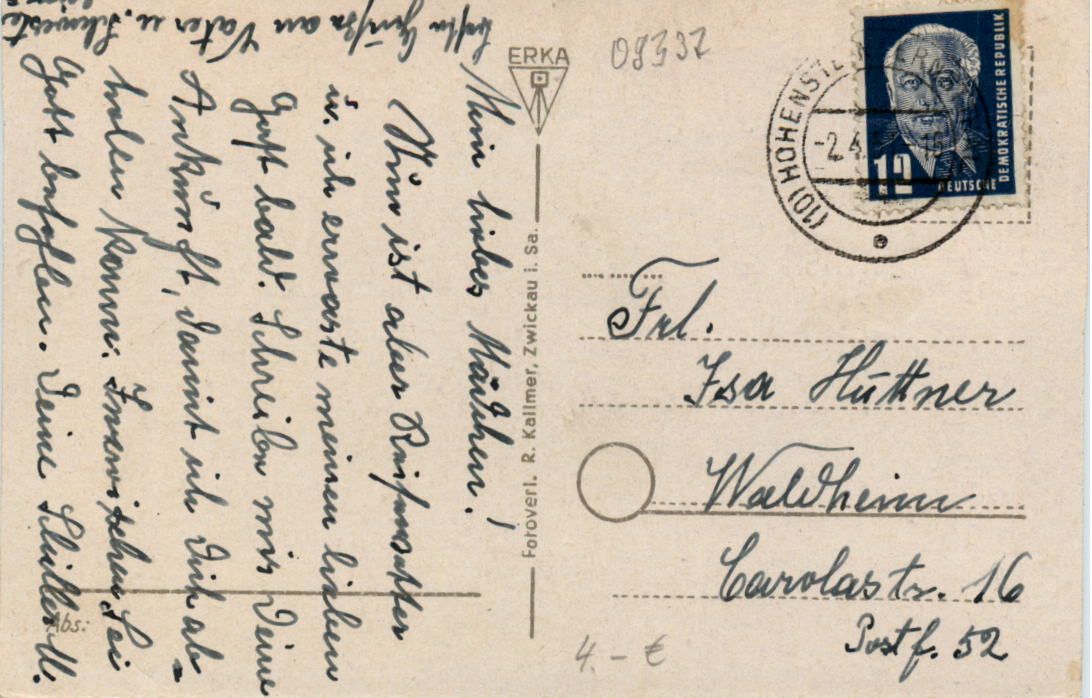 Mein liebes Mädchen!
Nun ist aber Reisewetter
u. ich erwarte meinen lieben
Gast bald. Schreibe mir Deine
Ankunft, damit ich Dich ab-
holen komm. Inzwischen sei
Gott befohlen. Deine
Beste Grüße an Vater u. Schwester
ERKA
Fotoverl. R. Kallmer, Zwickau i. Sa.
Abs:
09337
DEUTSCHE
DEMOKRATISCHE REPUBLIK
12
(10) HOHENSTE
-2.4.
Frl.
Isa Hüttner
Waldheim
Carolastr. 16
Postf. 52
4.- €